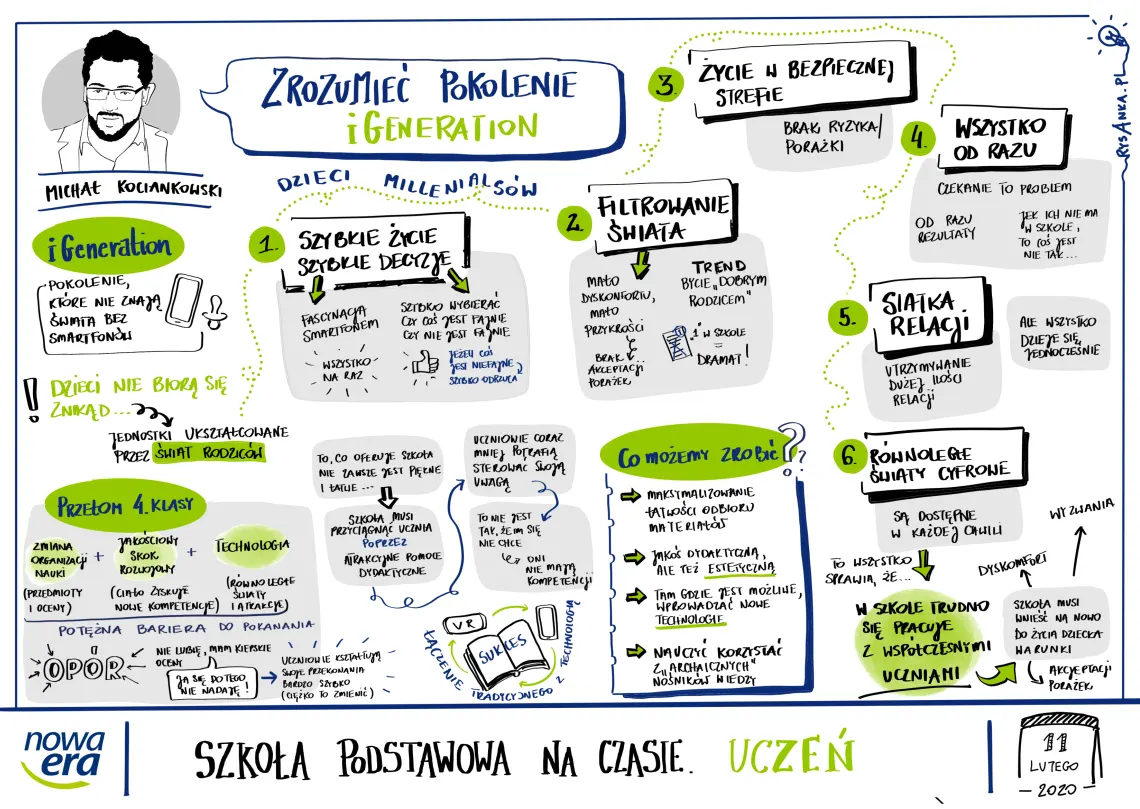 ZROZUMIEĆ POKOLENIE
iGENERATION
DZIECI MILLENIALSÓW
MICHAŁ KOCIANKOWSKI
iGeneration
POKOLENIE,
KTÓRE NIE ZNAJĄ
ŚWIATA BEZ
SMARTFONÓW
! DZIECI NIE BIORĄ SIĘ
ZNIKĄD...
JEDNOSTKI UKSZTAŁCOWANE
PRZEZ ŚWIAT RODZICÓW
1. SZYBKIE ŻYCIE
SZYBKIE DECYZJE
FASCYNACJA
SMARTFONEM
WSZYSTKO
NA RAZ
SZYBKO WYBIERAĆ
CZY COŚ JEST FAJNE
CZY NIE JEST FAJNE
JEŻELI COŚ
JEST NIEFAJNE
SZYBKO ODRZUCA
2. FILTROWANIE
ŚWIATA
MAŁO
DYSKOMFORTU,
MAŁO
PRZYKROŚCI
BRAK
AKCEPTACJI
PORAŻEK
TREND
BYCIE „DOBRYM
RODZICEM"
1 W SZKOLE
=
DRAMAT!
3. ŻYCIE W BEZPIECZNEJ
STREFIE
BRAK RYZYKA/
PORAŻKI
4. WSZYSTKO
OD RAZU
CZEKANIE TO PROBLEM
OD RAZU
REZULTATY
JEK ICH NIE MA
W SZKOLE,
TO COŚ JEST
NIE TAK...
5. SIATKA
RELACJI
UTRZYMYWANIE
DUŻEJ ILOŚCI
RELACJI
ALE WSZYSTKO
DZIEJE SIĘ
JEDNOCZEŚNIE
6. RÓWNOLEGŁE
ŚWIATY CYFROWE
SĄ DOSTĘPNE
W KAŻDEJ CHWILI
TO WSZYSTKO
SPRAWIA, ŻE...
W SZKOLE TRUDNO
SIĘ PRACUJE
Z WSPÓŁCZESNYMI
UCZNIAMI
DYSKOMFORT
WYZWANIA
SZKOŁA MUSI
WNIEŚĆ NA NOWO
DO ŻYCIA DZIECKA
WARUNKI
AKCJEPTACJI
PORAŻEK
PRZEŁOM 4. KLASY
ZMIANA
ORGANIZACJI
NAUKI
(PRZEDMIOTY
I OCENY)
+
JAKOŚCIOWY
SKOK
ROZWOJOWY
(CIAŁO ZYSKUJE
NOWE KOMPETENCJE)
+
TECHNOLOGIA
(RÓWNOLEGŁE
ŚWIATY
I ATRAKCJE)
POTĘŻNA BARIERA DO POKANANIA
OPOR
NIE LUBIĘ, MAM KIEPSKIE
OCENY
JA SIĘ DO TEGO
NIE NADAJĘ!
UCZNIOWIE KSZTAŁTUJĄ
SWOJE PRZEKONANIA
BARDZO SZYBKO
(CIĘŻKO TO ZMIENIĆ)
TO, CO OFERUJE SZKOŁA
NIE ZAWSZE JEST PIĘKNE
I ŁATWE...
SZKOŁA MUSI
PRZYCIĄGNĄĆ UCZNIA
POPRZEZ
ATRAKCYJNE POMOCE
DYDAKTYCZNE
UCZNIOWIE CORAZ
MNIEJ POTRAFIĄ
STEROWAĆ SWOJĄ
UWAGĄ
TO NIE JEST
TAK, ŻE IM SIĘ
NIE CHCE
ONI
NIE MAJĄ
KOMPETENCJI
VR
SUKCES
ŁĄCZENIE TRADYCYJNEGO Z TECHNOLOGIĄ
CO MOŻEMY ZROBIĆ??
MAKSYMALIZOWANIE
ŁATWOŚCI ODBIORU
MATERIAŁÓW
JAKOŚ DYDAKTYCZNĄ,
ALE TEŻ ESTETYCZNĄ
TAM GDZIE JEST MOŻLIWE,
WPROWADZAĆ NOWE
TECHNOLOGIE
NAUCZYĆ KORZYSTAĆ
Z „ARCHAICZNYCH"
NOŚNIKÓW WIEDZY
RYSANKA.PL
nowa
era
SZKOŁA PODSTAWOWA NA CZASIE. UCZEŃ
11
LUTEGO
- 2020 -